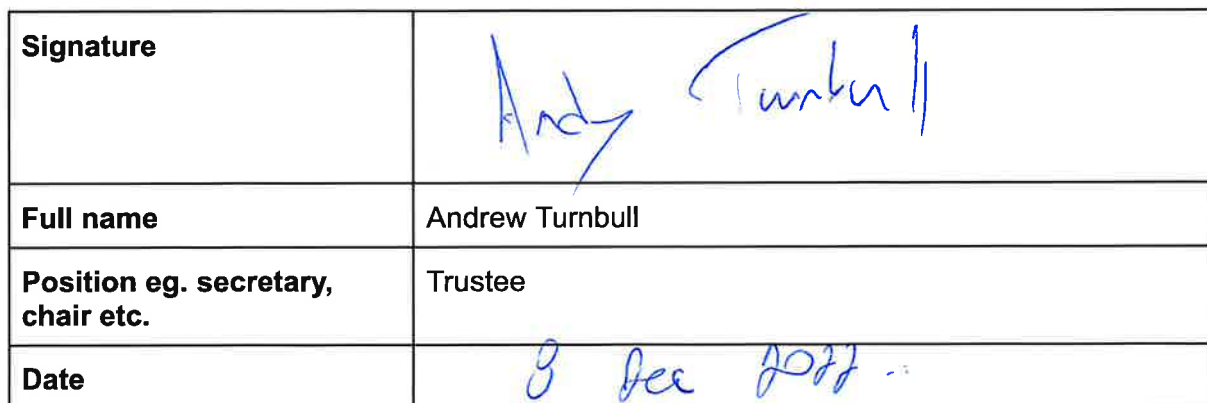 Signature
Andy Turnbull
Full name
Andrew Turnbull
Position eg. secretary,
chair etc.
Trustee
Date
8 Dec 2022